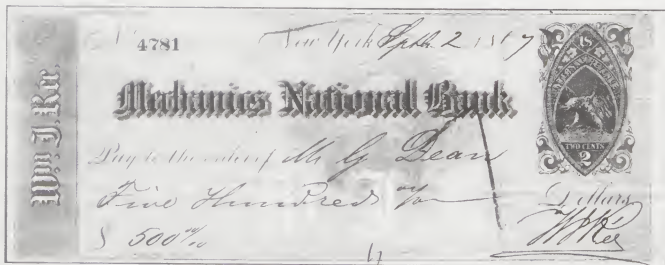 Wm J. Kir.
No 4781
New York Sept 2 1867
Mechanics National Bank
Pay to the order of M G Dean
Five Hundred
Dollars
$ 500
TWO CENTS
2